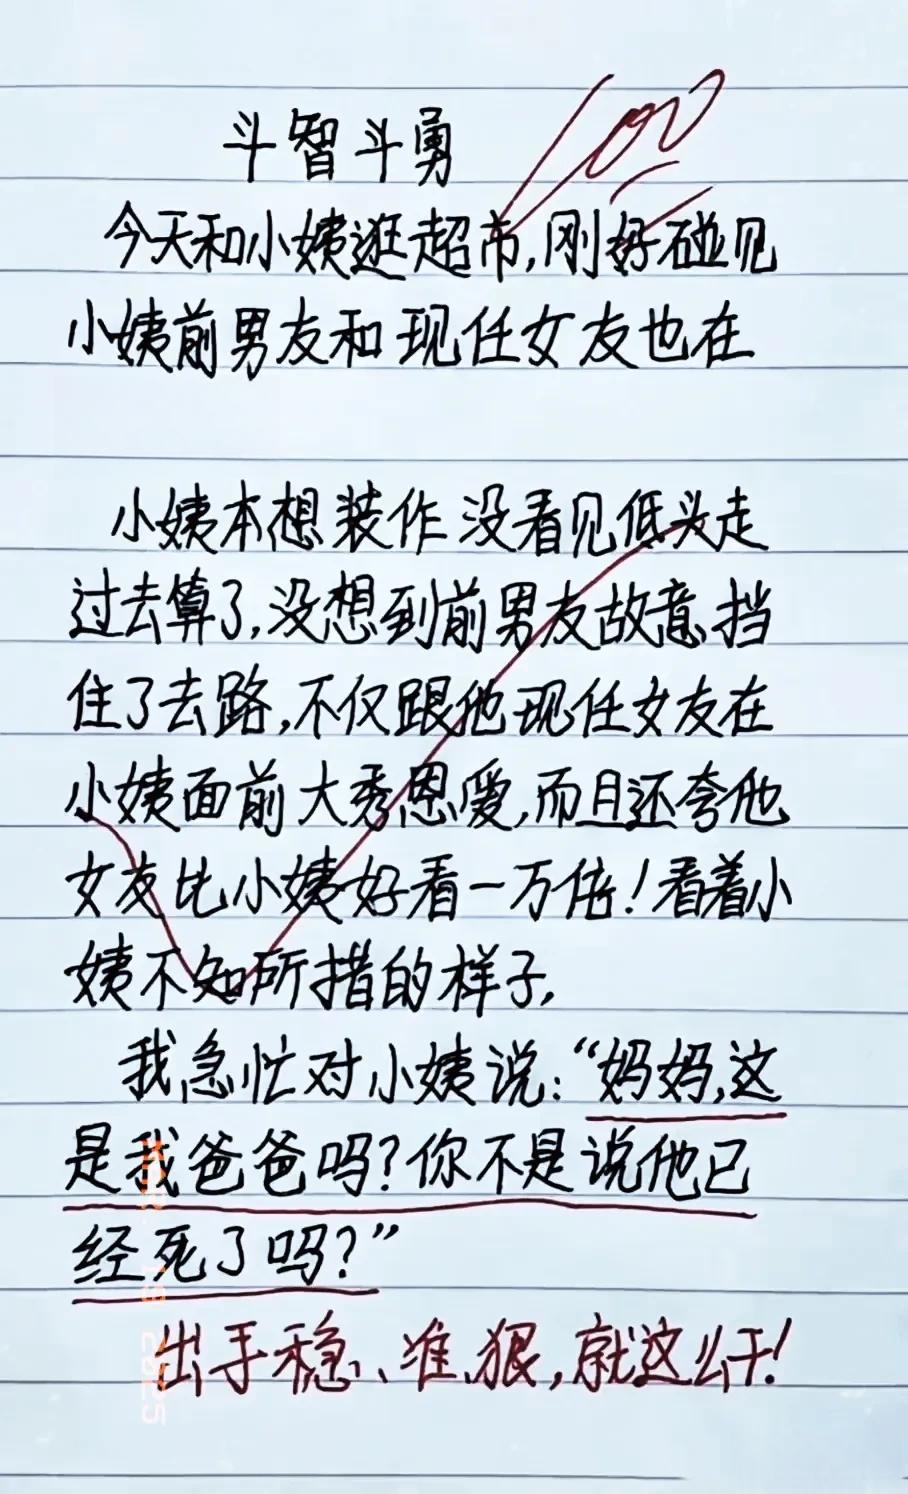 斗智斗勇
100
今天和小姨逛超市,刚好碰见
小姨前男友和现任女友也在
小姨本想装作没看见低头走
过去算了,没想到前男友故意挡
住了去路,不仅跟他现任女友在
小姨面前大秀恩爱,而且还夸他
女友比小姨好看一万倍!看着小
姨不知所措的样子,
我急忙对小姨说:“妈妈,这
是我爸爸吗?你不是说他已
经死了吗?”
出手稳、准、狠,就这么干!